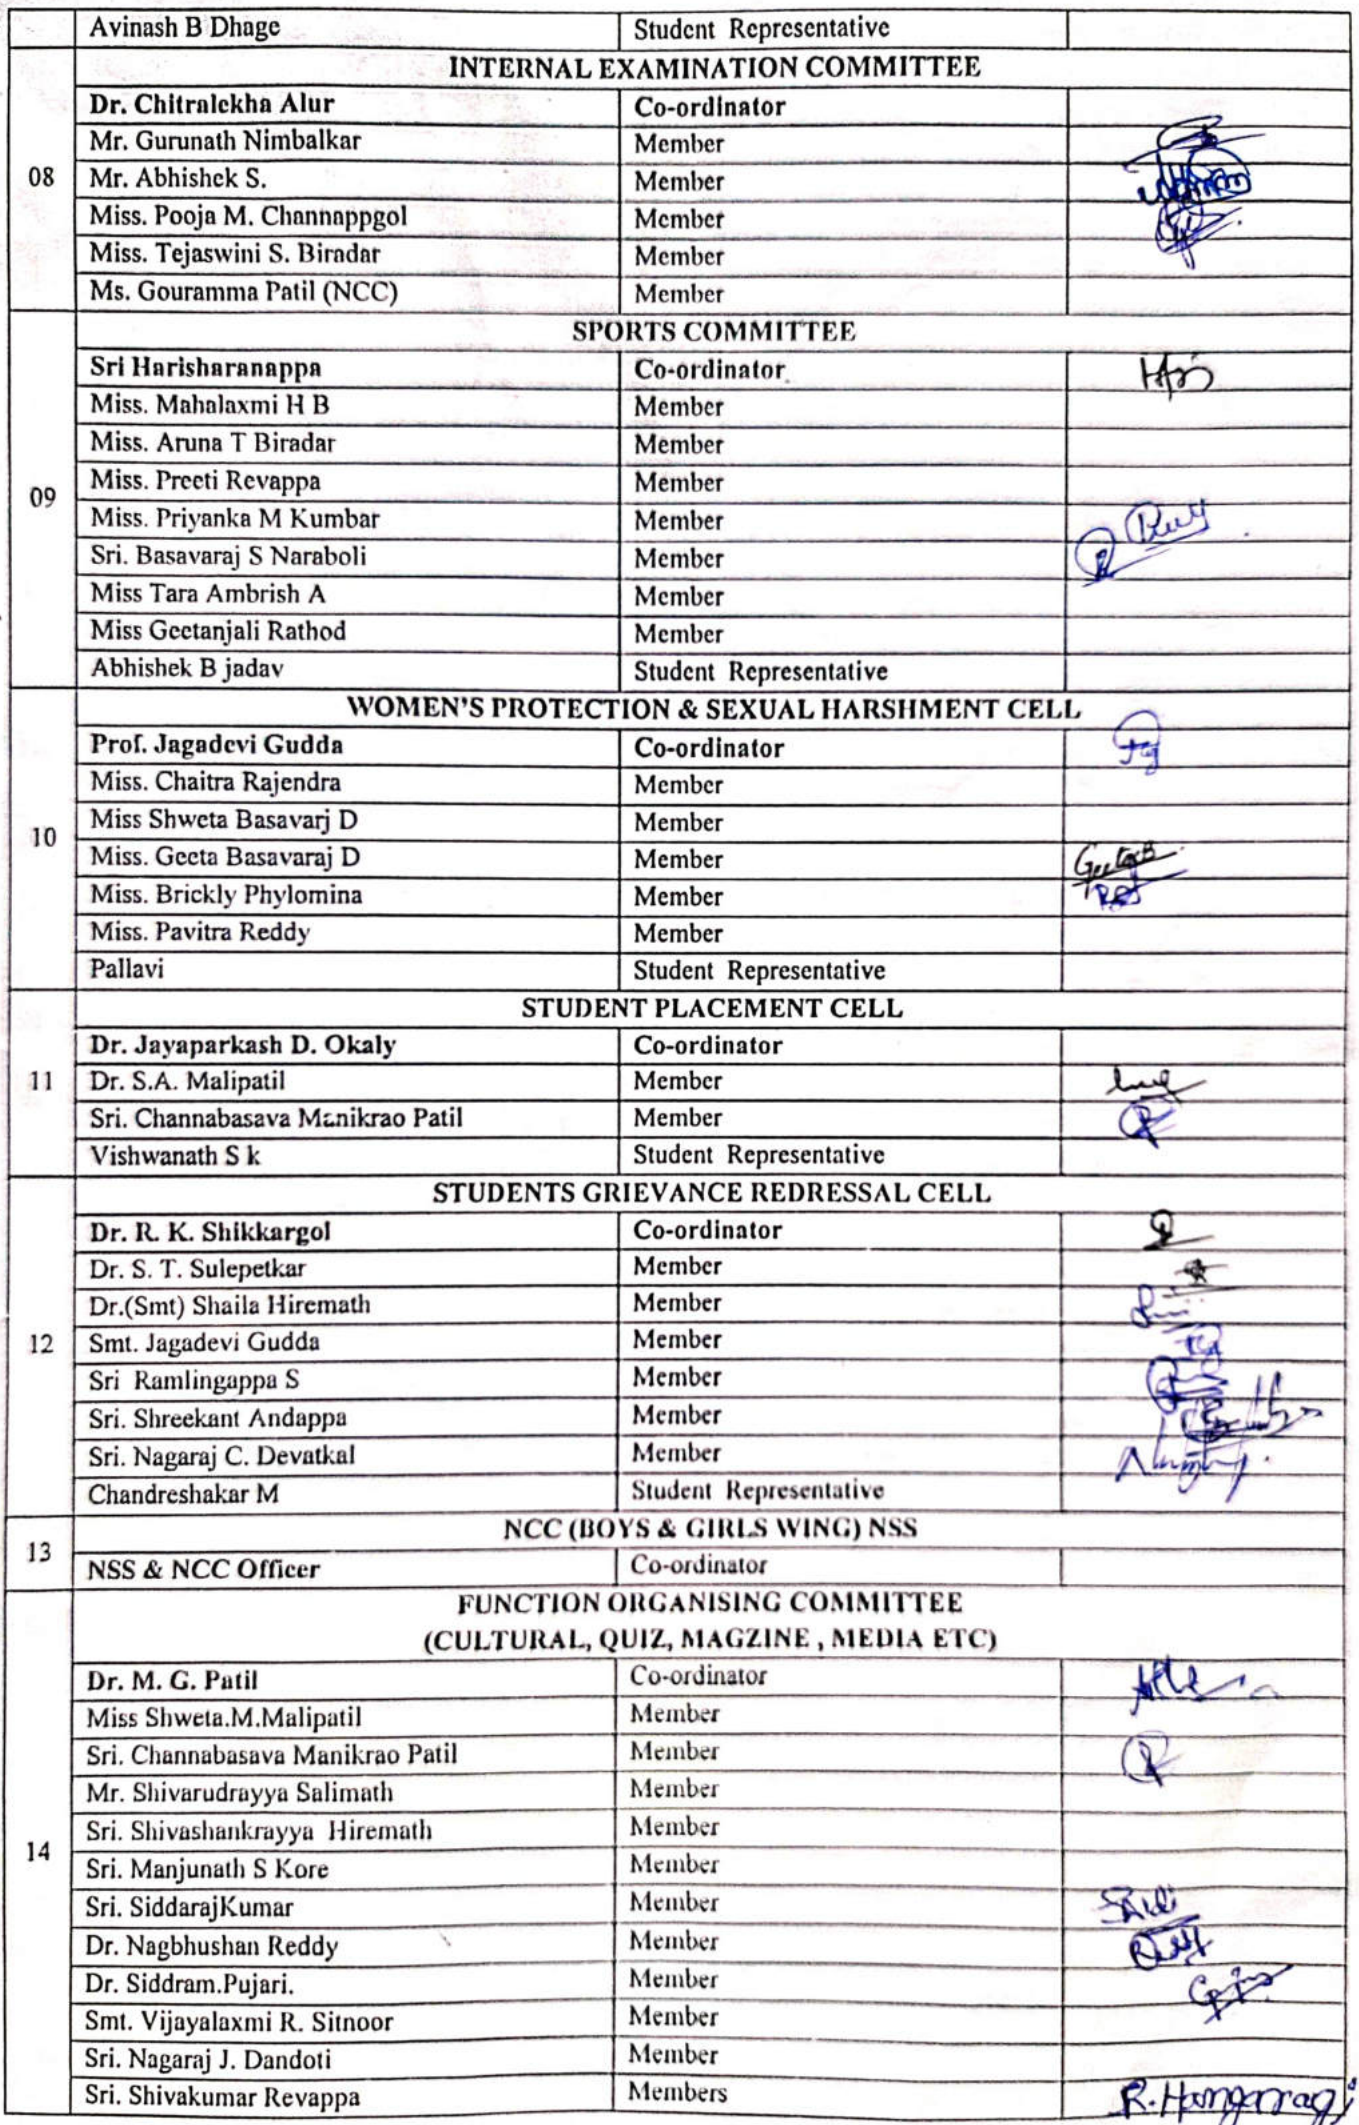 Avinash B Dhage Student Representative
INTERNAL EXAMINATION COMMITTEE
Dr. Chitralekha Alur Co-ordinator
Mr. Gurunath Nimbalkar Member
08 Mr. Abhishek S. Member
Miss. Pooja M. Channappgol Member
Miss. Tejaswini S. Biradar Member
Ms. Gouramma Patil (NCC) Member
SPORTS COMMITTEE
Sri Harisharanappa Co-ordinator
Miss. Mahalaxmi H B Member
Miss. Aruna T Biradar Member
Miss. Preeti Revappa Member
09 Miss. Priyanka M Kumbar Member
Sri. Basavaraj S Naraboli Member
Miss Tara Ambrish A Member
Miss Geetanjali Rathod Member
Abhishek B jadav Student Representative
WOMEN'S PROTECTION & SEXUAL HARSHMENT CELL
Prof. Jagadevi Gudda Co-ordinator
Miss. Chaitra Rajendra Member
Miss Shweta Basavarj D Member
10 Miss. Geeta Basavaraj D Member
Miss. Brickly Phylomina Member
Miss. Pavitra Reddy Member
Pallavi Student Representative
STUDENT PLACEMENT CELL
Dr. Jayaparkash D. Okaly Co-ordinator
11 Dr. S.A. Malipatil Member
Sri. Channabasava Manikrao Patil Member
Vishwanath S k Student Representative
STUDENTS GRIEVANCE REDRESSAL CELL
Dr. R. K. Shikkargol Co-ordinator
Dr. S. T. Sulepetkar Member
Dr.(Smt) Shaila Hiremath Member
12 Smt. Jagadevi Gudda Member
Sri Ramlingappa S Member
Sri. Shreekant Andappa Member
Sri. Nagaraj C. Devatkal Member
Chandreshakar M Student Representative
NCC (BOYS & GIRLS WING) NSS
13 NSS & NCC Officer Co-ordinator
FUNCTION ORGANISING COMMITTEE
(CULTURAL, QUIZ, MAGZINE , MEDIA ETC)
Dr. M. G. Patil Co-ordinator
Miss Shweta.M.Malipatil Member
Sri. Channabasava Manikrao Patil Member
Mr. Shivarudrayya Salimath Member
Sri. Shivashankrayya Hiremath Member
14 Sri. Manjunath S Kore Member
Sri. SiddarajKumar Member
Dr. Nagbhushan Reddy Member
Dr. Siddram.Pujari. Member
Smt. Vijayalaxmi R. Sitnoor Member
Sri. Nagaraj J. Dandoti Member
Sri. Shivakumar Revappa Members